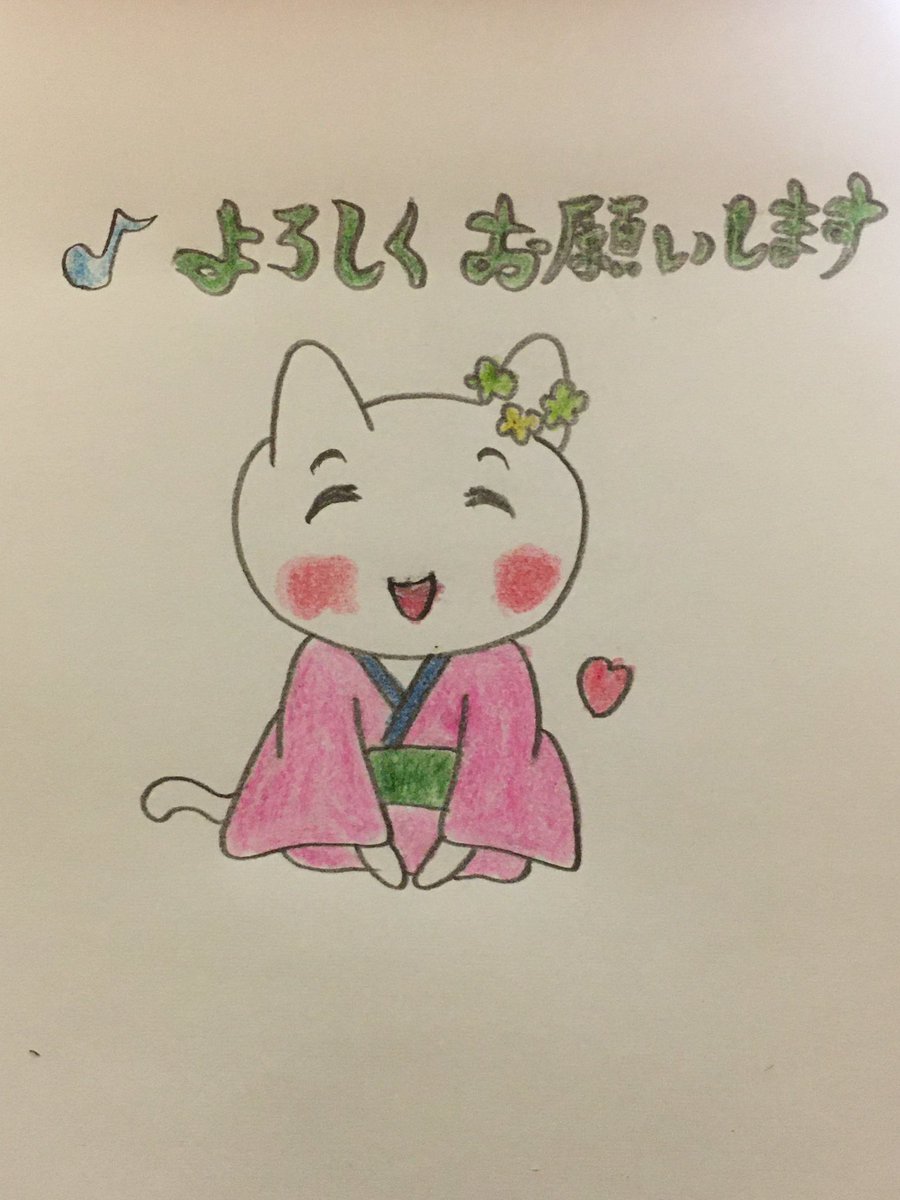 ♪ よろしく お願いします